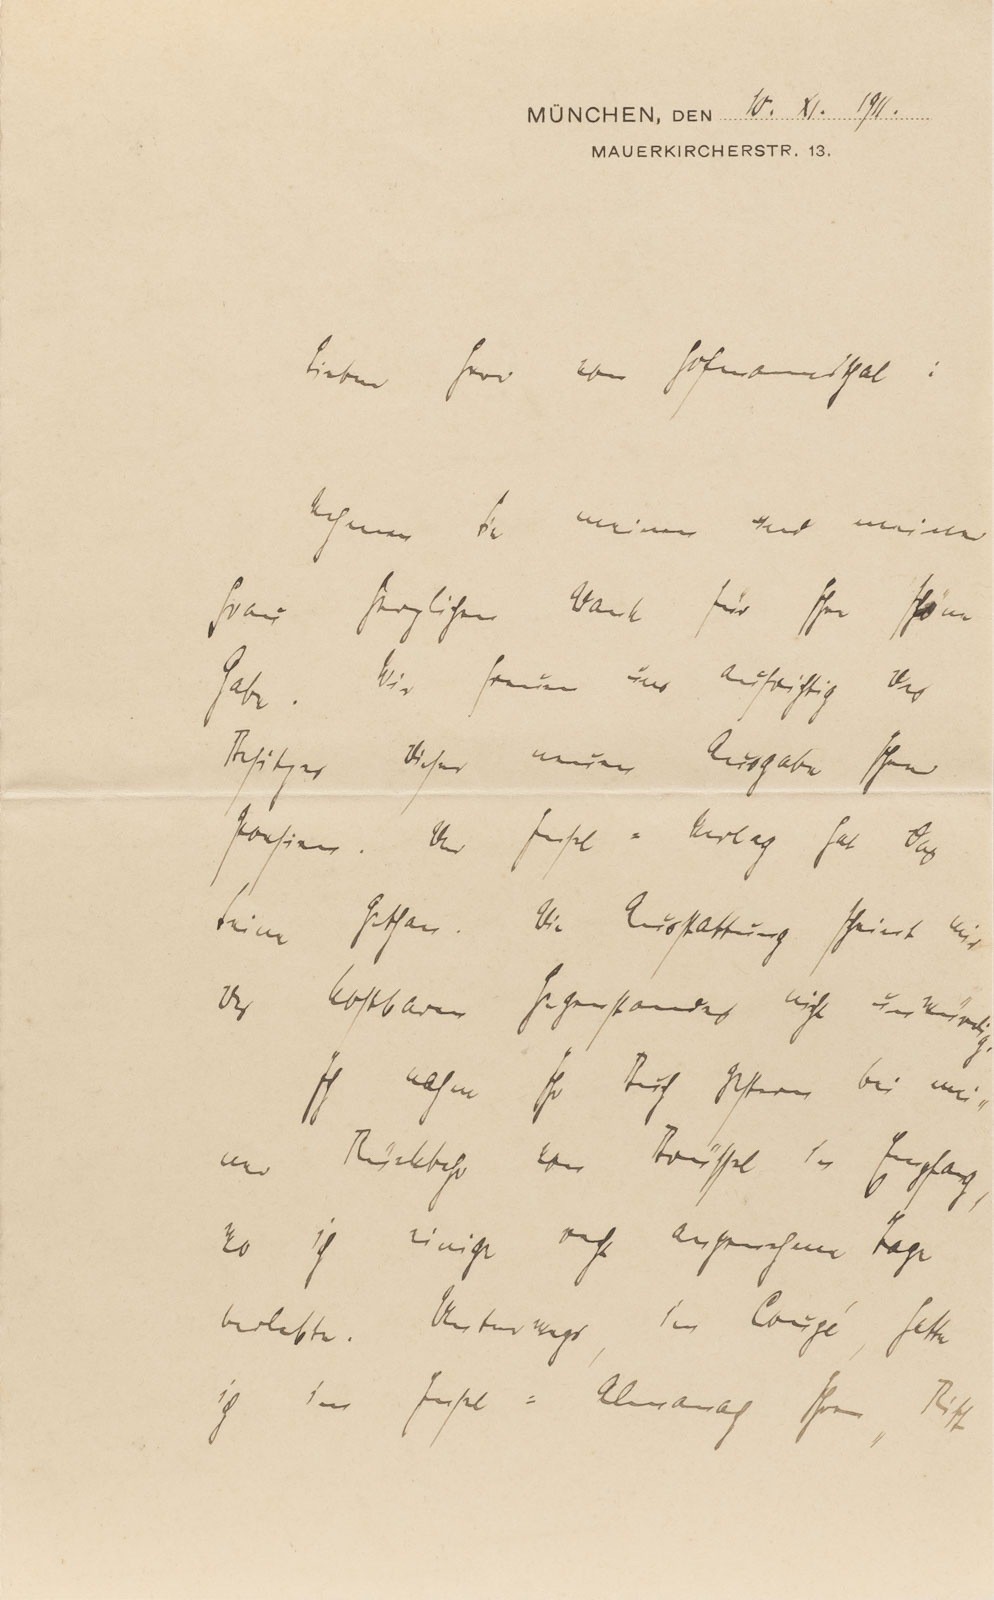 MÜNCHEN, DEN 10. XI. 1911.
MAUERKIRCHERSTR. 13.
Lieber Herr von Hofmannsthal:
Nehmen Sie meinen und meiner
Frau herzlichen Dank für Ihre schöne
Gabe. Wir freuen uns aufrichtig des
Besitzes dieser neuen Ausgabe Ihrer
Poesieen. Der Insel=Verlag hat das
Seine gethan. Die Ausstattung scheint mir
des kostbaren Gegenstandes nicht unwürdig.
Ich nahm Ihr Buch gestern bei mei„
ner Rückkehr von Brüssel in Empfang,
wo ich einige recht angenehme Tage
verlebte. Unterwegs, im Coupé, hatte
ich im Insel=Almanach Ihren „